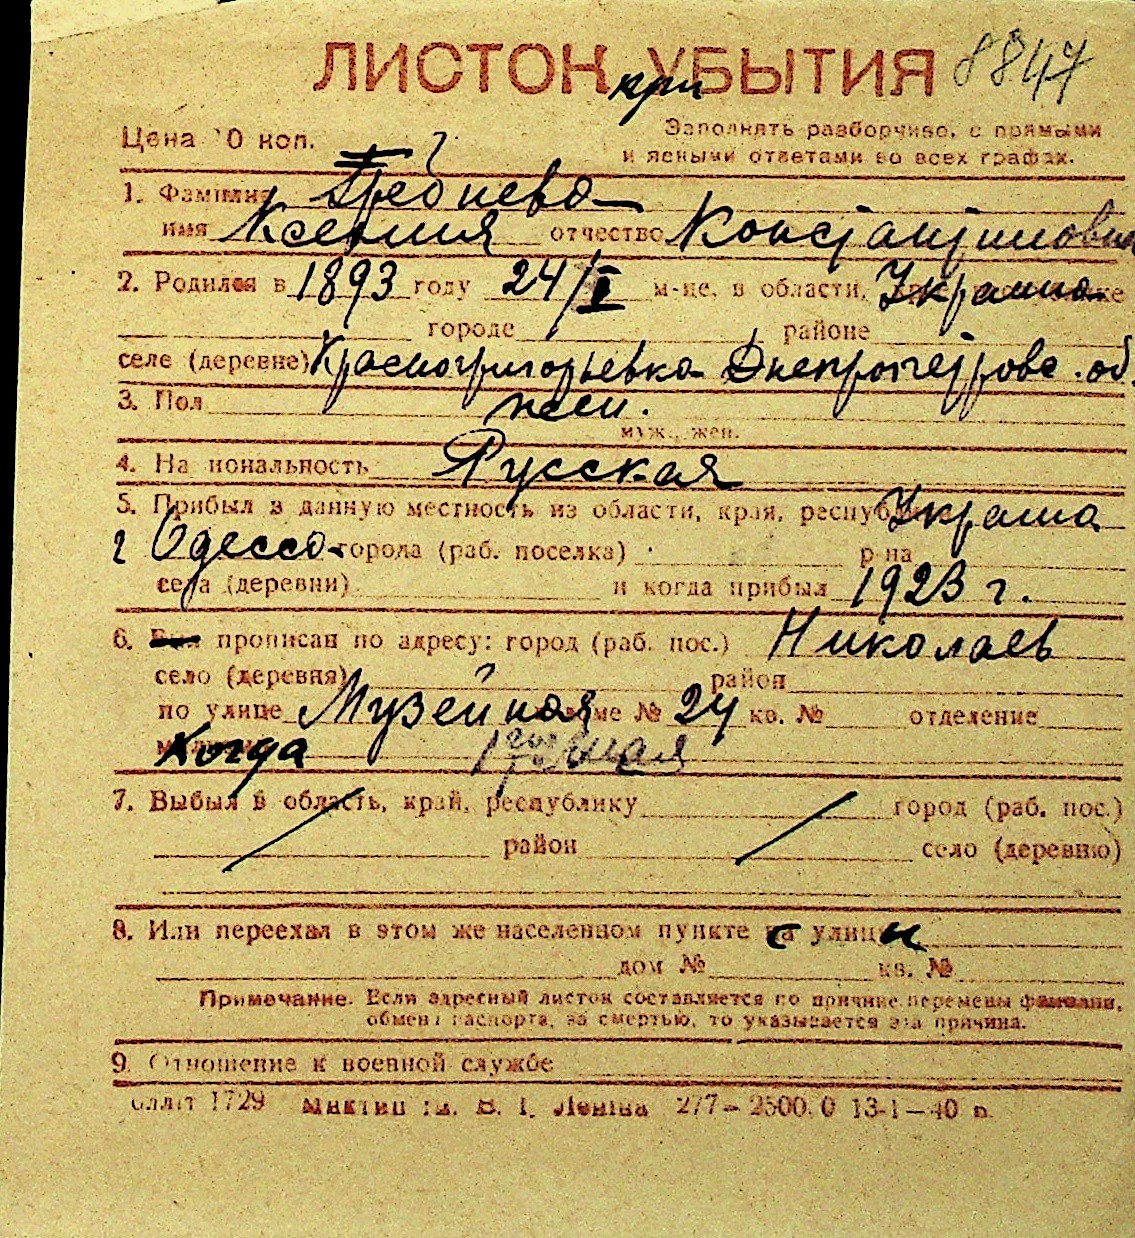 ЛИСТОК УБЫТИЯ 8847
при
Цена 10 коп. Заполнять разборчиво, с прямыми
и ясными ответами во всех графах.
1. Фамилия Гребнева
имя Ксения отчество Константиновна
2. Родился в 1893 году 24/I м-це, в области, Украина
городе районе
селе (деревне) Красногригорьевка Днепропетровс. об.
3. Пол жен.
муж., жен.
4. На иональность Русская
5. Прибыл в данную местность из области, края, республ Украина
г Одесса города (раб. поселка) р-на
села (деревни) и когда прибыл 1923 г.
6. прописан по адресу: город (раб. пос.) Николаев
село (деревня) район
по улице Музейная доме № 24 кв. № отделение
Когда
7. Выбыл в область, край, республику город (раб. пос.)
район село (деревню)
8. Или переехал в этом же населенном пункте с улицы
дом № кв. №
Примечание. Если адресный листок составляется по причине перемены фамилии,
обмена паспорта, за смертью, то указывается эта причина.
9. Отношение к военной службе
1729 ім. В. І. Леніна 277–2500.0 13-I–40 р.